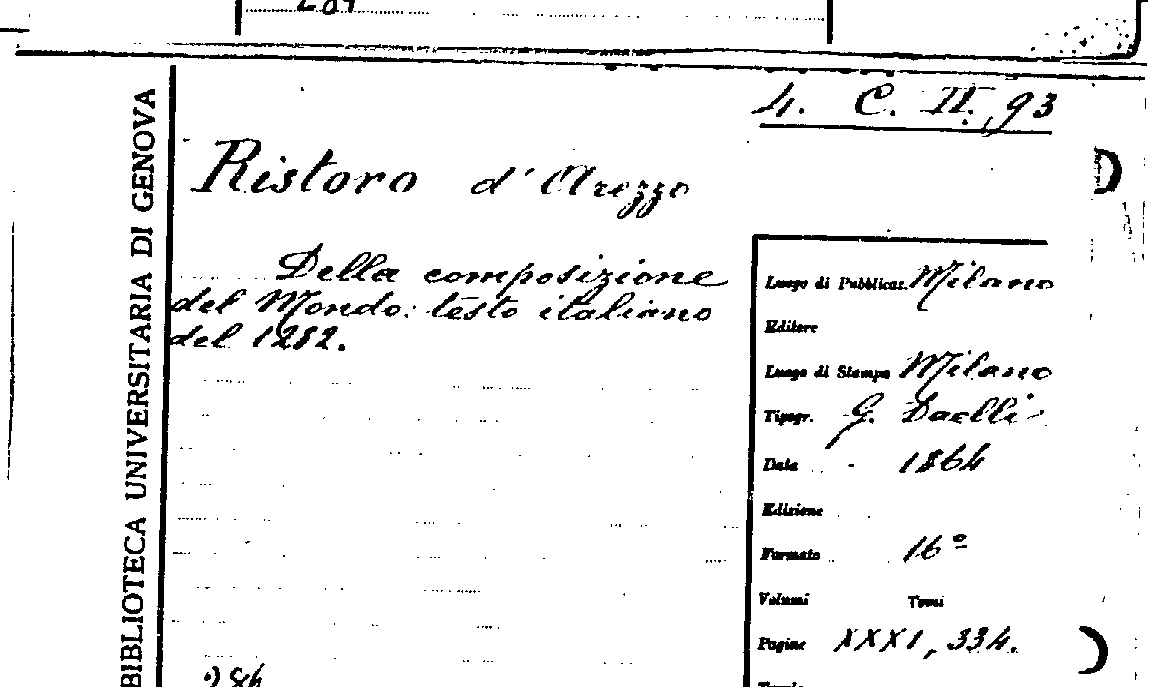 4. C. II. 93
BIBLIOTECA UNIVERSITARIA DI GENOVA
Ristoro d'Arezzo
Della composizione
del Mondo: testo italiano
del 1282.
Luogo di Pubblicaz. Milano
Editore
Luogo di Stampa Milano
Tipogr. G. Daelli
Data 1864
Edizione
Formato 16º
Volumi Tomi
Pagine XXXI, 334.